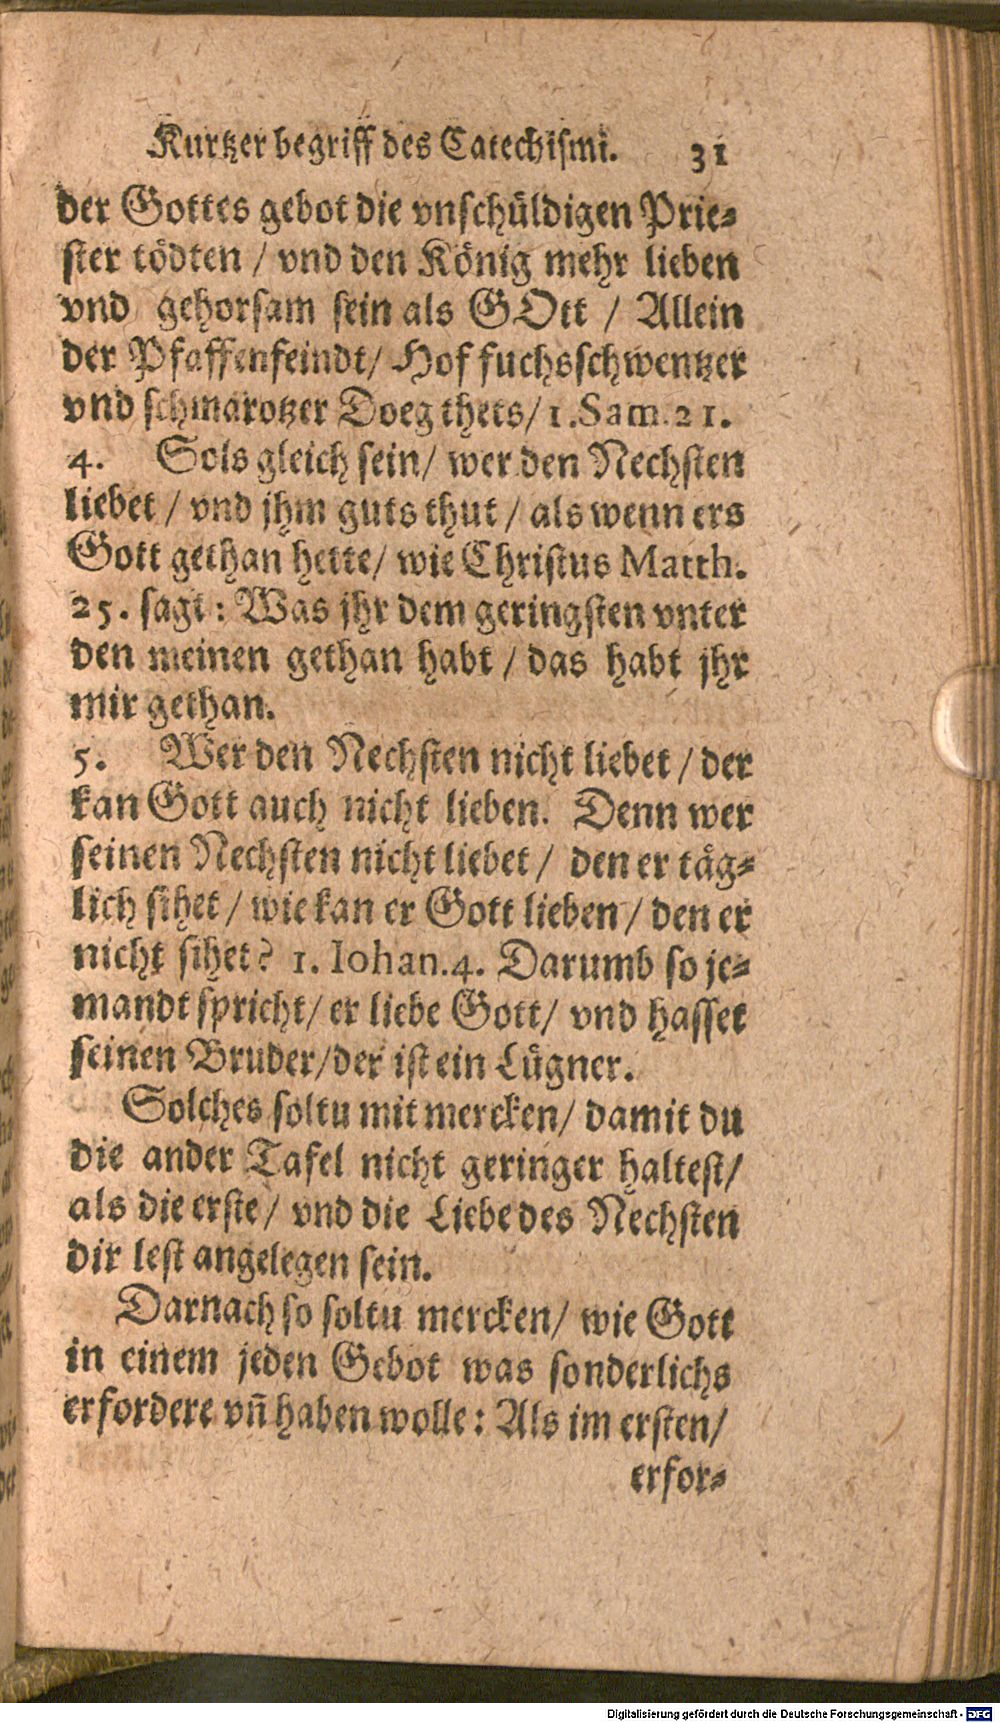 Kurtzer begriff des Catechismi. 31
der Gottes gebot die vnschüldigen Prie-
ster tödten / vnd den König mehr lieben
vnd gehorsam sein als GOtt / Allein
der Pfaffenfeindt/ Hoffuchsschwentzer
vnd schmarotzer Doeg thets/ 1.Sam.21.
4. Sols gleich sein/ wer den Nechsten
liebet / vnd jhm guts thut / als wenn ers
Gott gethan hette/ wie Christus Matth.
25. sagt: Was jhr dem geringsten vnter
den meinen gethan habt / das habt jhr
mir gethan.
5. Wer den Nechsten nicht liebet / der
kan Gott auch nicht lieben. Denn wer
seinen Nechsten nicht liebet / den er täg-
lich sihet / wie kan er Gott lieben / den er
nicht sihet? 1. Iohan.4. Darumb so je-
mandt spricht/ er liebe Gott/ vnd hasset
seinen Bruder/der ist ein Lügner.
Solches soltu mit mercken/ damit du
die ander Tafel nicht geringer haltest/
als die erste/ vnd die Liebe des Nechsten
dir lest angelegen sein.
Darnach so soltu mercken/ wie Gott
in einem jeden Gebot was sonderlichs
erfordere vñ haben wolle: Als im ersten/
erfor-
Digitalisierung gefördert durch die Deutsche Forschungsgemeinschaft - DFG